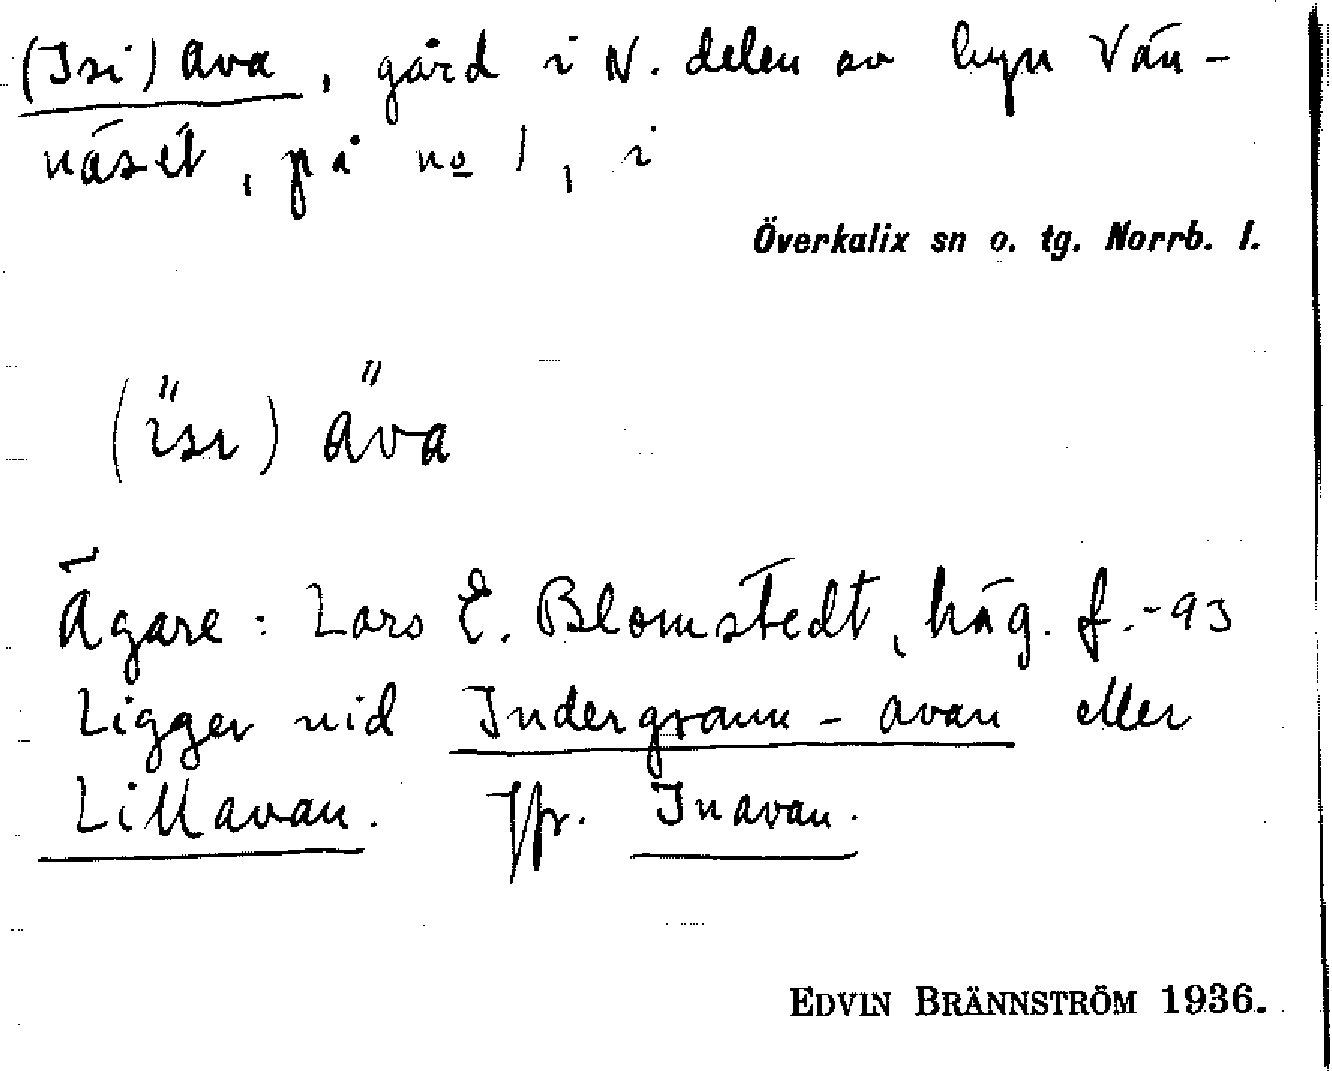 (Isi) Ava, gård i N. delen av byn Vän-
näset, på no 1, i
Överkalix sn o. tg. Norrb. l.
(isi) ava
Ägare: Lars E. Blomstedt, häg. f. -93
Ligger vid Indergrann-avan eller
Lillavan. Jfr. Inavan.
EDVIN BRÄNNSTRÖM 1936.